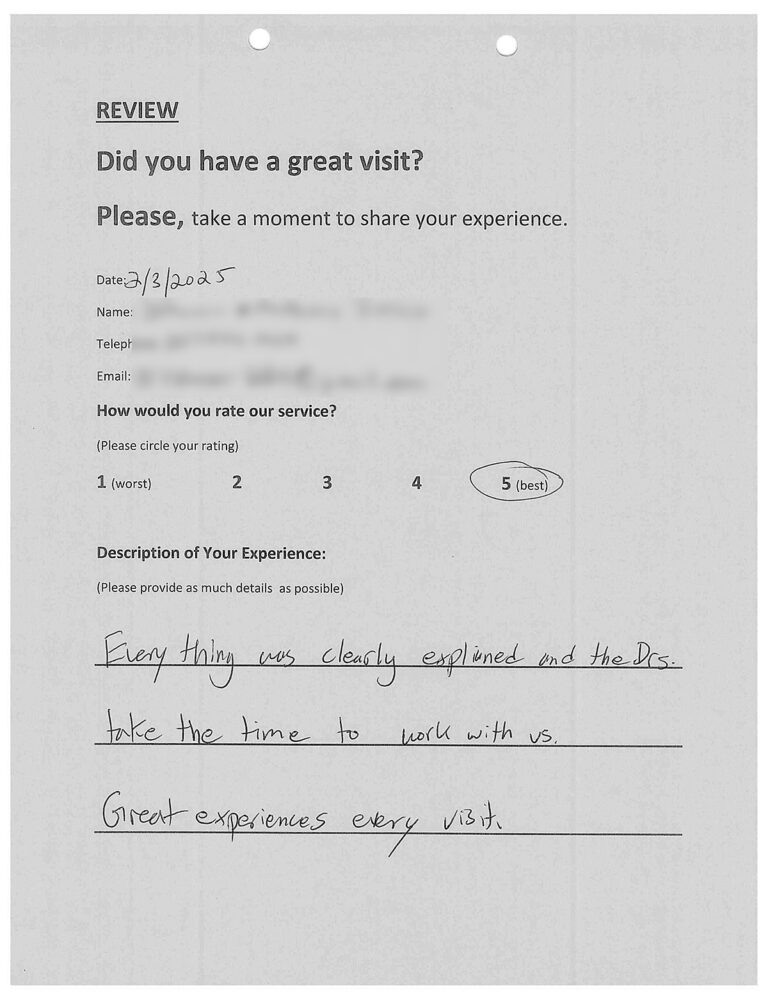 REVIEW
Did you have a great visit?
Please, take a moment to share your experience.
Date: 2/3/2025
Name:
Teleph
Email:
How would you rate our service?
(Please circle your rating)
1 (worst) 2 3 4 5 (best)
Description of Your Experience:
(Please provide as much details as possible)
Every thing was clearly explained and the Drs.
take the time to work with us.
Great experiences every visit.